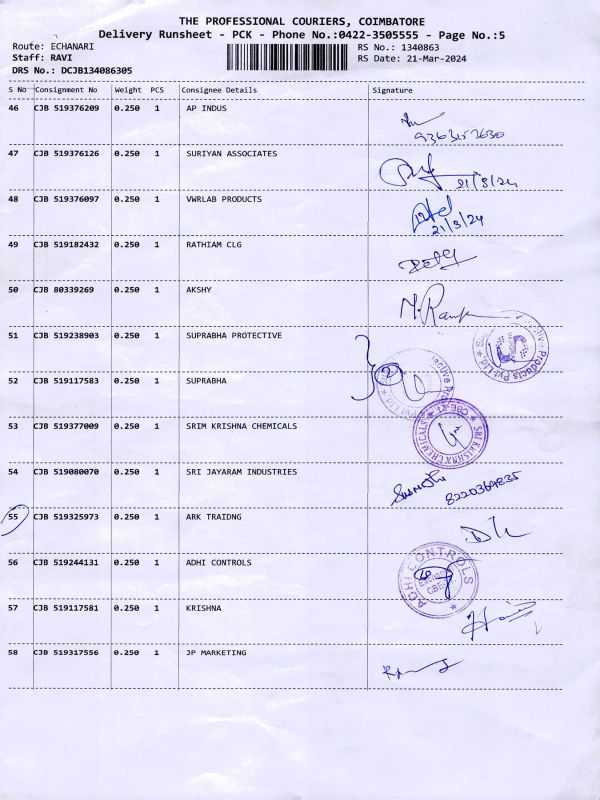 THE PROFESSIONAL COURIERS, COIMBATORE
Delivery Runsheet - PCK - Phone No.:0422-3505555 - Page No.:5
Route: ECHANARI RS No.: 1340863
Staff: RAVI RS Date: 21-Mar-2024
DRS No.: DCJB134086305
S No Consignment No Weight PCS Consignee Details Signature
46 CJB 519376209 0.250 1 AP INDUS
47 CJB 519376126 0.250 1 SURIYAN ASSOCIATES 21/3/24
48 CJB 519376097 0.250 1 VWRLAB PRODUCTS
21/3/24
49 CJB 519182432 0.250 1 RATHIAM CLG
50 CJB 80339269 0.250 1 AKSHY
51 CJB 519238903 0.250 1 SUPRABHA PROTECTIVE
Products Pvt Ltd
52 CJB 519117583 0.250 1 SUPRABHA 2
53 CJB 519377009 0.250 1 SRIM KRISHNA CHEMICALS
SRI KRISHNA CHEMICALS CBE-21
54 CJB 519080070 0.250 1 SRI JAYARAM INDUSTRIES
8220364835
55 CJB 519325973 0.250 1 ARK TRAIDNG
56 CJB 519244131 0.250 1 ADHI CONTROLS
ADHI CONTROLS
57 CJB 519117581 0.250 1 KRISHNA
58 CJB 519317556 0.250 1 JP MARKETING